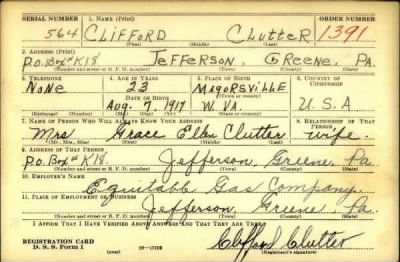 SERIAL NUMBER 1. NAME (Print) ORDER NUMBER
564 CLIFFORD CLUTTER 1391
(First) (Middle) (Last)
2. ADDRESS (Print)
P.O. BOX # K18 JEFFERSON, GREENE, PA.
(Number and street or R. F. D. number) (Town) (County) (State)
3. TELEPHONE 4. AGE IN YEARS 5. PLACE OF BIRTH 6. COUNTRY OF CITIZENSHIP
NONE 23 MAGORSVILLE
DATE OF BIRTH (Town or county)
AUG. 7, 1917 W. VA. U.S.A
(Exchange) (Number) (Mo.) (Day) (Yr.) (State or country)
7. NAME OF PERSON WHO WILL ALWAYS KNOW YOUR ADDRESS 8. RELATIONSHIP OF THAT PERSON
Mrs Grace Ellen Clutter wife.
(Mr., Mrs., Miss) (First) (Middle) (Last)
9. ADDRESS OF THAT PERSON
P.O. Box # K18. Jefferson, Greene, Pa.
(Number and street or R. F. D. number) (Town) (County) (State)
10. EMPLOYER'S NAME
Equitable Gas Company.
11. PLACE OF EMPLOYMENT OR BUSINESS
Jefferson, Greene, Pa.
(Number and street or R. F. D. number) (Town) (County) (State)
I AFFIRM THAT I HAVE VERIFIED ABOVE ANSWERS AND THAT THEY ARE TRUE.
REGISTRATION CARD
D. S. S. Form 1 Clifford Clutter
(Registrant's signature)